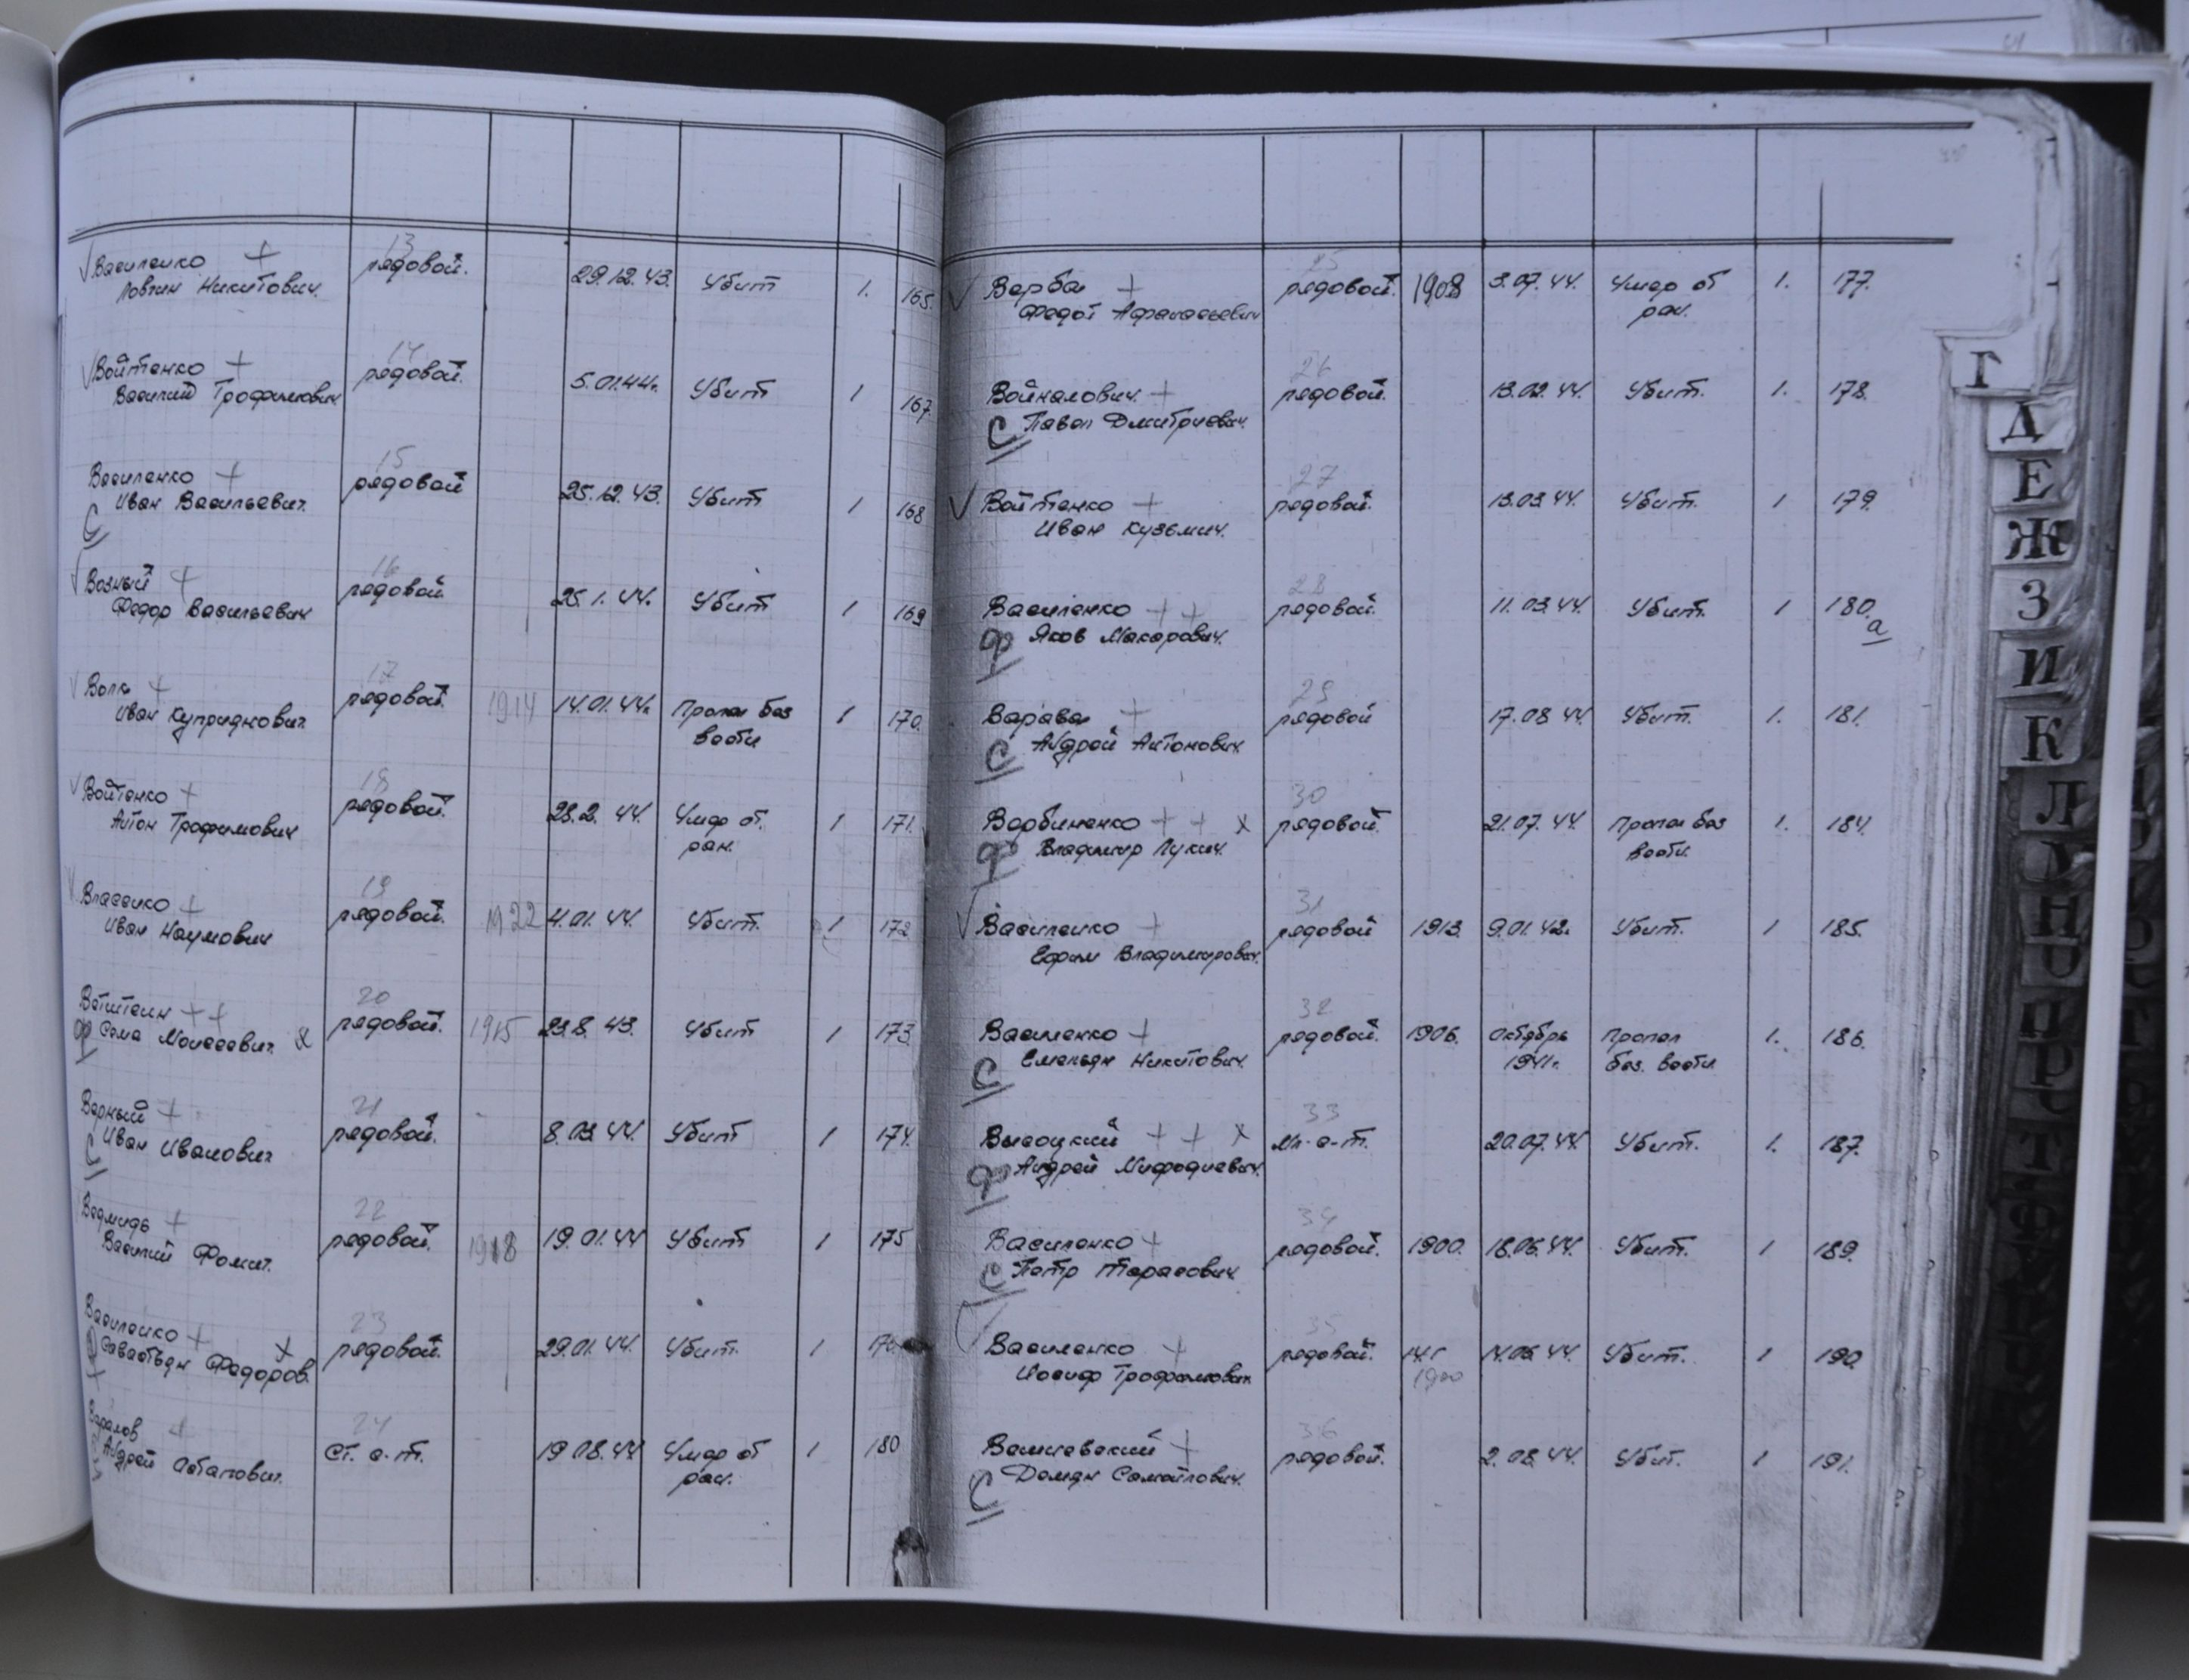 13
Василенко + рядовой. 29.12.43. Убит 1. 165.
Никитович.
14
Войтенко + рядовой. 5.01.44г. Убит 1 167.
Василий Трофимович
15
Василенко + рядовой 25.12.43. Убит 1 168
Иван Васильевич.
С
16
Возный + рядовой. 25.1.44. Убит 1 169
Федор Васильевич
17
Волк + рядовой. 1914 14.01.44г. Пропал без 1 170.
Иван Куприянович вести
18
Войтенко + рядовой. 28.2.44. Умер от 1 171.
Антон Трофимович ран.
19
Власенко + рядовой. 1922 4.01.44. Убит. 1 172
Иван Наумович
20
++ рядовой. 1915 23.8.43. Убит 1 173.
Ф Сема Моисеевич х
21
Верный + рядовой. 8.03.44. Убит 1 174.
С Иван Иванович
22
Ведмидь + рядовой. 1918 19.01.44 Убит 1 175
Василий Фомич.
23
Василенко + х рядовой. 29.01.44. Убит. 1 176
Савостьян Федоров.
24
+ Ст. с-т. 19.08.44 Умер от 1 180
Андрей ран.
25
Верба + рядовой. 1908 3.07.44. Умер от 1. 177.
Федот Афанасьевич ран.
26
Войналович + рядовой. 13.02.44. Убит. 1. 178.
С Павел Дмитриевич.
27
Войтенко + рядовой. 13.03.44. Убит. 1 179.
Иван Кузьмич.
28
Василенко ++ рядовой. 11.03.44. Убит. 1 180.а
Ф Яков Макарович.
29
Варава + рядовой 17.08.44. Убит. 1. 181.
С Андрей Антонович
30
Вербиненко ++ х рядовой. 21.07.44. Пропал без 1. 184.
Ф Владимир Лукич. вести.
31
Василенко + рядовой 1913. 9.01.42г. Убит. 1 185.
Ефим Владимирович.
32
Василенко + рядовой. 1906. Октябрь Пропал 1. 186.
С Емельян Никитович. 1941г. без вести
33
Высоцкий ++ х Мл. с-т. 20.07.44. Убит. 1. 187.
Ф Андрей Мифодиевич.
34
Василенко + рядовой. 1900. 18.06.44. Убит. 1 189.
С Петр Тарасович
35
Василенко + рядовой. 44. Убит. 1 190.
Иосиф Трофимович 1900
36
+ рядовой. 2.08.44. Убит. 1 191.
С Демян Самойлович.
Г
Д
Е
Ж
З
И
К
Л
Н
П
Р
Т